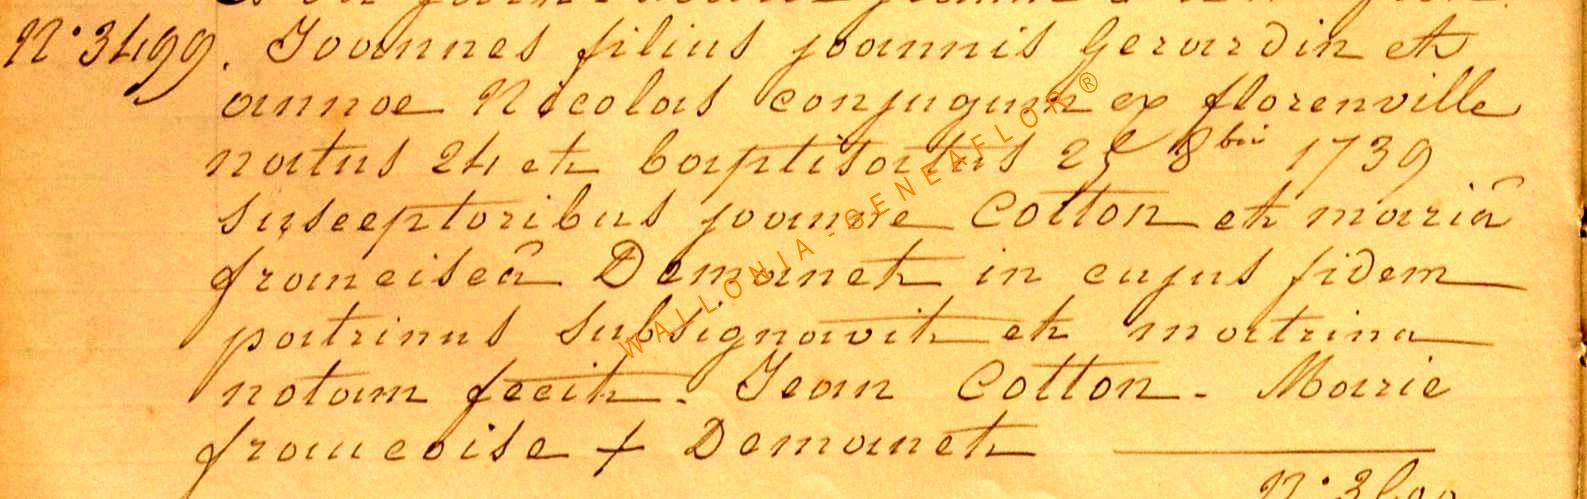 N° 3499. Joannes filius joannis Gerardin et
annae Nicolas conjugum ex florenville
natus 24 et baptisatus 25 8bris 1739
susceptoribus joanne Cotton et mariâ
franciscâ Demanet in cujus fidem
patrinus subsignavit et matrina
notam fecit. Jean Cotton. Marie
francoise + Demanet
WALLONIA-GENEAFLOR ®